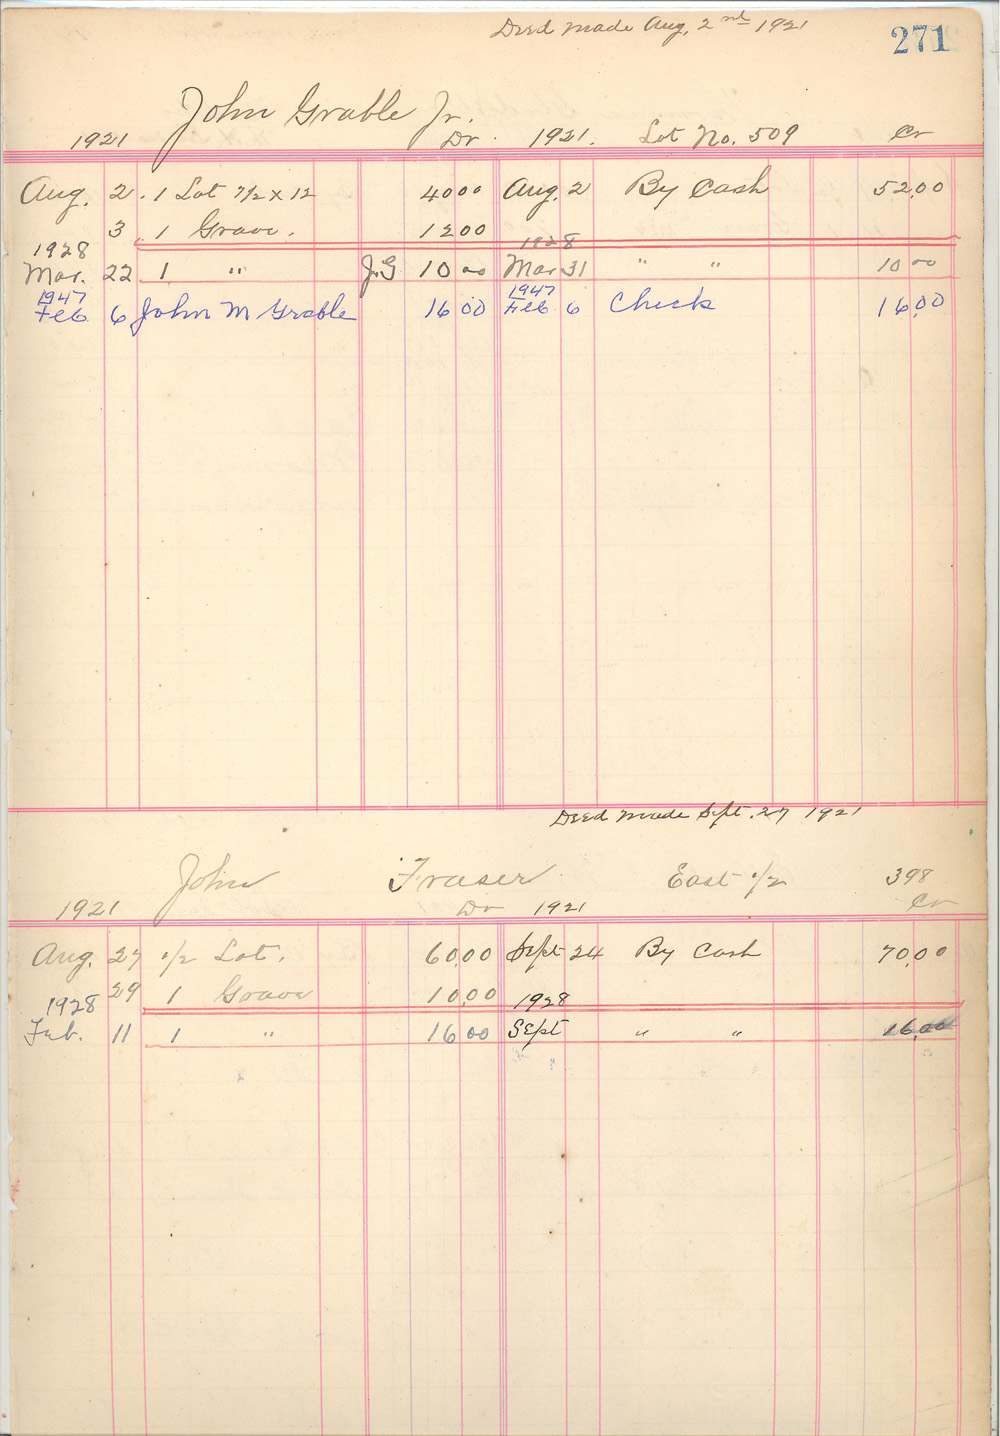 Deed Made Aug. 2nd 1921
271
John Grable Jr.
1921 Dr. 1921. Lot No. 509 Cr
Aug. 2. 1 Lot 7 1/2 x 12 40 00 Aug. 2 By Cash 52.00
3 1 Grave. 12 00
1928 1928
Mar. 22 1 " J.G 10 00 Mar 31 " " 10 00
1947 1947
Feb 6 John M Grable 16 00 Feb 6 Check 16.00
Deed Made Sept. 27 1921
John Fraser East 1/2 398
1921 Dr 1921 Cr
Aug. 27 1/2 Lot. 60.00 Sept 24 By Cash 70.00
29 1 Grave 10.00
1928 1928
Feb. 11 1 " 16 00 Sept " " 16.00